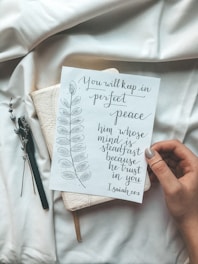 You will keep in
perfect
peace
him whose
mind is
steadfast
because
he trust
in you
Isaiah